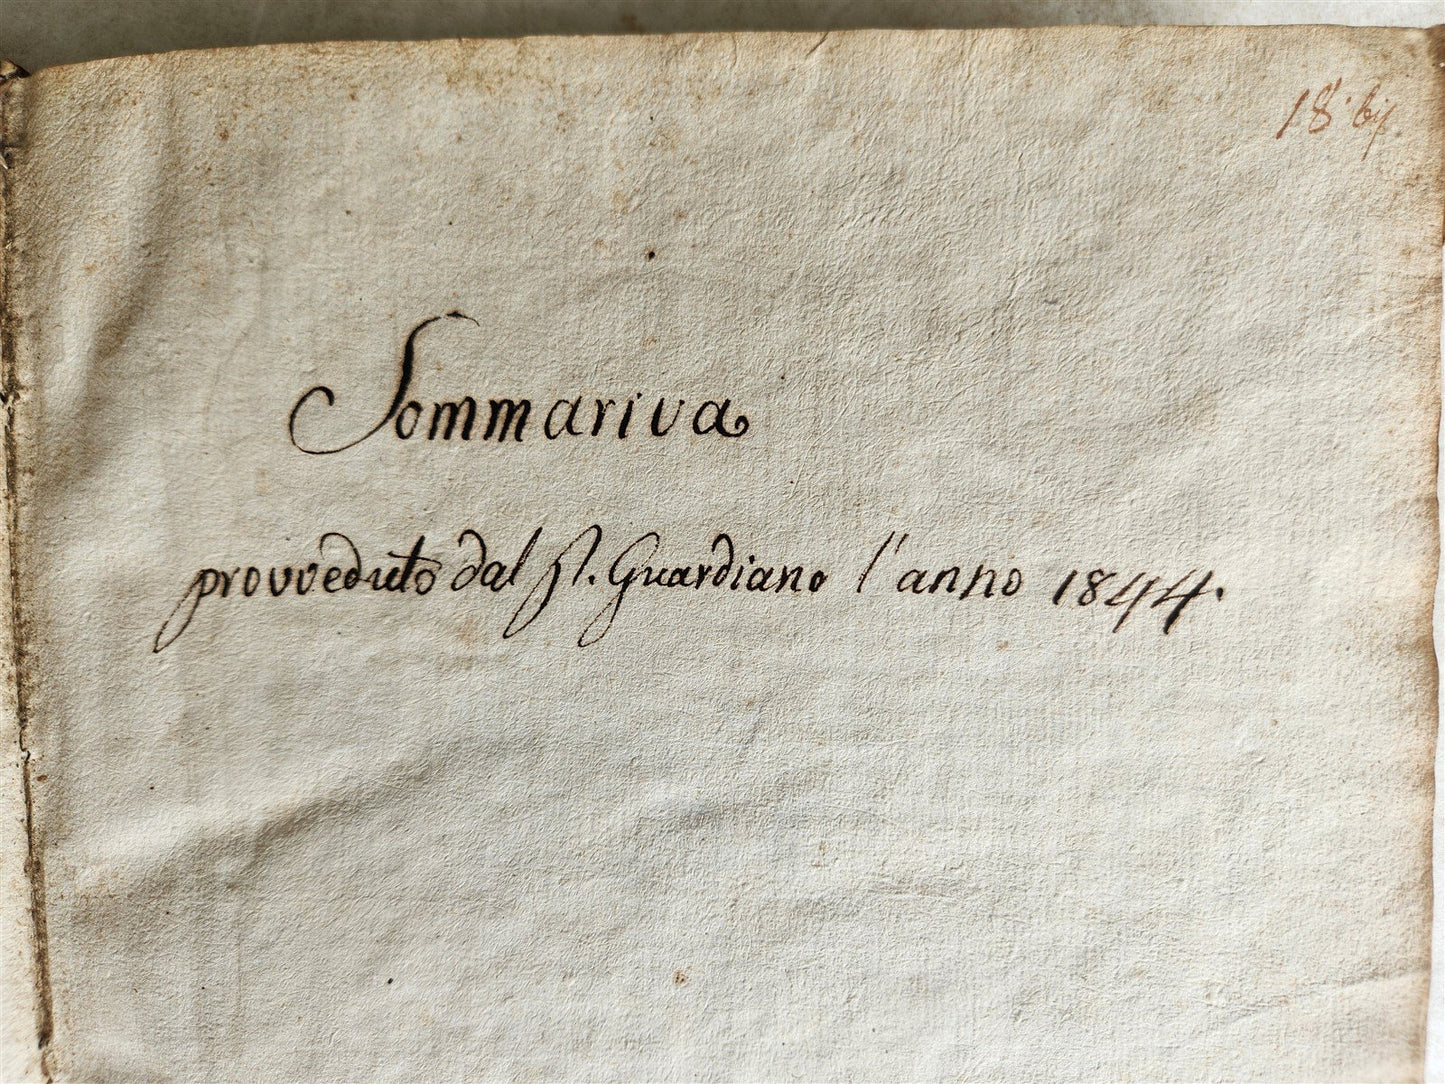 18. bis.
Sommariva
provveduto dal P. Guardiano l'anno 1844.